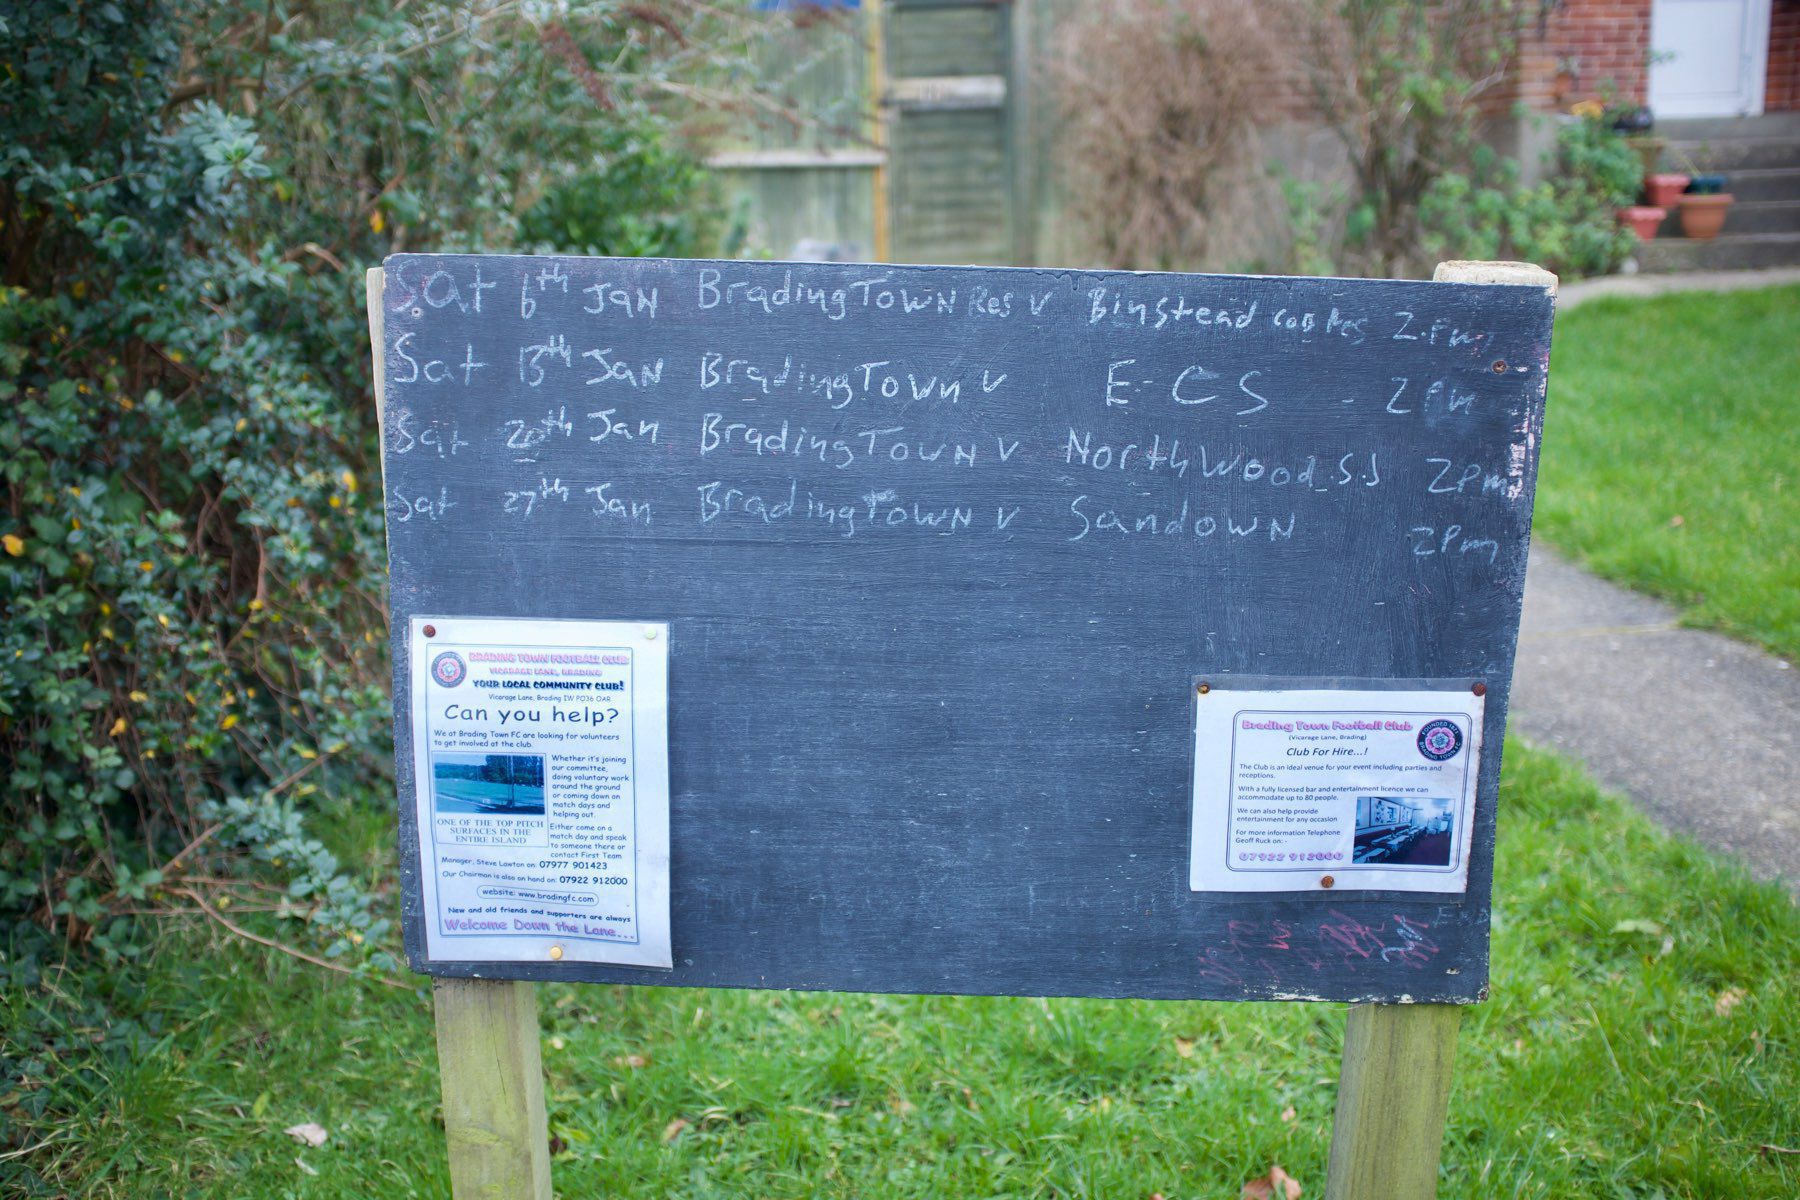 Sat 6th Jan Brading Town Res v Binstead COB Res 2.Pm
Sat 13th Jan Brading Town v E-C S - 2 Pm
Sat 20th Jan Brading Town v Northwood S.S 2Pm
Sat 27th Jan Brading Town v Sandown 2Pm
BRADING TOWN FOOTBALL CLUB
VICARAGE LANE, BRADING
YOUR LOCAL COMMUNITY CLUB!
Vicarage Lane, Brading IW PO36 0AR
Can you help?
We at Brading Town FC are looking for volunteers
to get involved at the club.
Whether it's joining
our committee,
doing voluntary work
around the ground
or coming down on
match days and
helping out.
ONE OF THE TOP PITCH
SURFACES IN THE
ENTIRE ISLAND
Either come on a
match day and speak
to someone there or
contact First Team
Manager, Steve Lawton on: 07977 901423
Our Chairman is also on hand on: 07922 912000
website: www.bradingfc.com
New and old friends and supporters are always
Welcome Down the Lane...
Brading Town Football Club
(Vicarage Lane, Brading)
Club For Hire...!
FOUNDED 1871
BRADING TOWN FC
The Club is an ideal venue for your event including parties and
receptions.
With a fully licensed bar and entertainment licence we can
accommodate up to 80 people.
We can also help provide
entertainment for any occasion
For more information Telephone
Geoff Ruck on: -
07922 912000